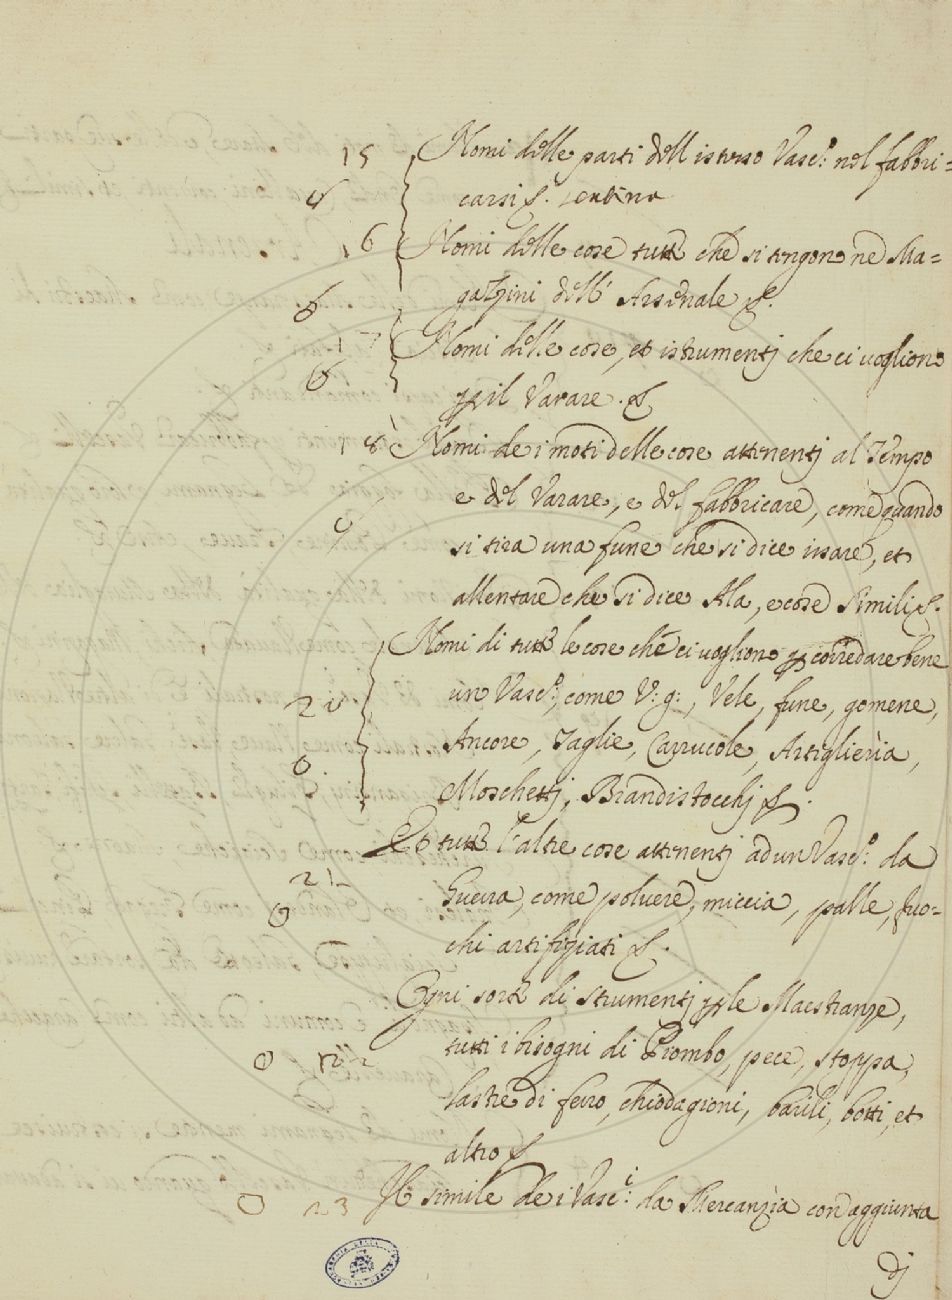 15 Nomi delle parti dell istesso Vasc.º nel fabbri=
carsi &. sentina
16 Nomi delle cose tutte che si tengono ne Ma=
gazzini dell' Arsenale &.
17 Nomi delle cose, et istrumentj che ci vogliono
p il Varare. &
18 Nomi de i moti delle cose attenentj al Tempo
e del Varare, e del fabbricare, come quando
si tira una fune che si dice issare, et
allentare che si dice Ala, e cose Simili &.
20 Nomi di tutte le cose che ci vogliono p corredare bene
un Vasc.º, come V: g:, Vele, fune, gomene,
Ancore, Taglie, Carrucole, Artiglieria,
Moschettj, Brandistocchj &.
Et tutte l'altre cose attenentj ad un Vasc.º da
21 Guerra, come polvere, miccia, palle, fuo=
chi artifiziati &.
Ogni sorte di strumentj p le Maestranze,
0 22 tutti i bisogni di Piombo, pece, stoppa,
lastre di ferro, chiodagioni, barili, botti, et
altro &
0 23 Il simile de i Vasc.i da Mercanzia con aggiunta
dj